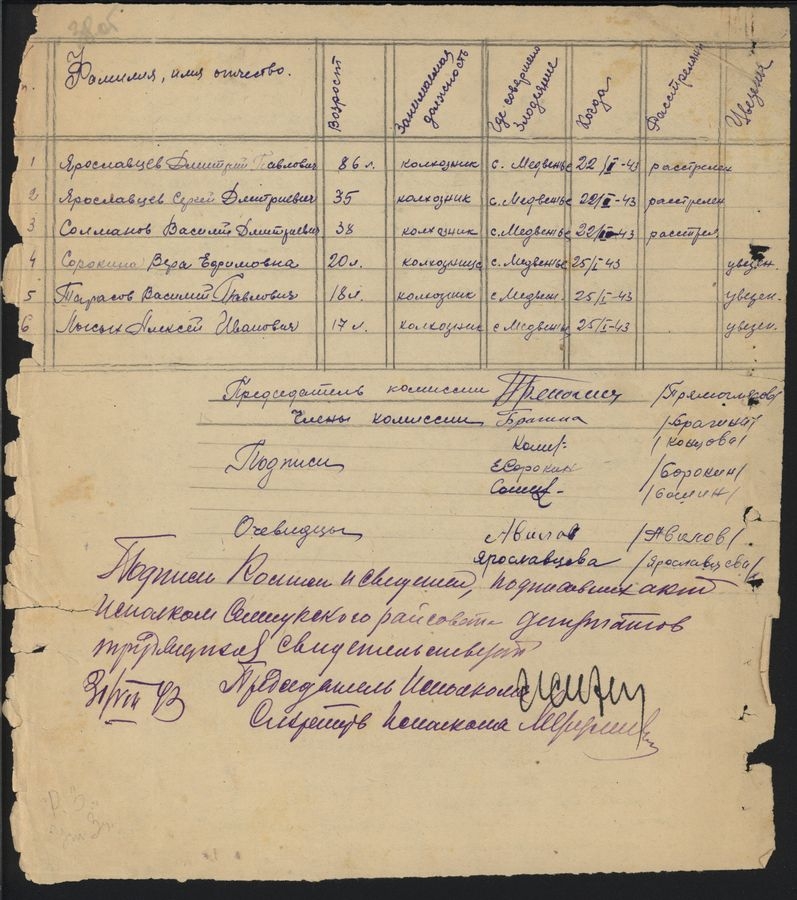 38 об
Фамилия, имя отчество. Возрост Занимаемая должность Где совершено Злодеяние Когда Расстрелян Увезены
1 Ярославцев Дмитрий Павлович 86 л. колхозник с. Медвежье 22/I-43 расстрелен
2 Ярославцев Сергей Дмитриевич 35 колхозник с. Медвежье 22/I-43 расстрелен
3 Солманов Василий Дмитриевич 38 колхозник с. Медвежье 22/I-43 расстрел
4 Сорокина Вера Ефимовна 20 л. колхозница с. Медвежье 25/I-43 увезен.
5 Тарасов Василий Павлович 18 л. колхозник с. Медвеж. 25/I-43 увезен.
6 Лысых Алексей Иванович 17 л. колхозник с Медвежье 25/I-43 увезен.
Председатель комиссии
Члены комиссии Брагина /Брагина/
/Концова/
Подписи ЕСорокин /Сорокин/
/Сомин/
Очевидцы Авилов /Авилов/
Ярославцева /Ярославцева/
Подписи Комиссии и свидетелей, подписавших акт
исполком Семилукского райсовета депутатов
трудящихся свидетельствует
31/VIII 43 Председатель Исполкома
Секретарь Исполкома